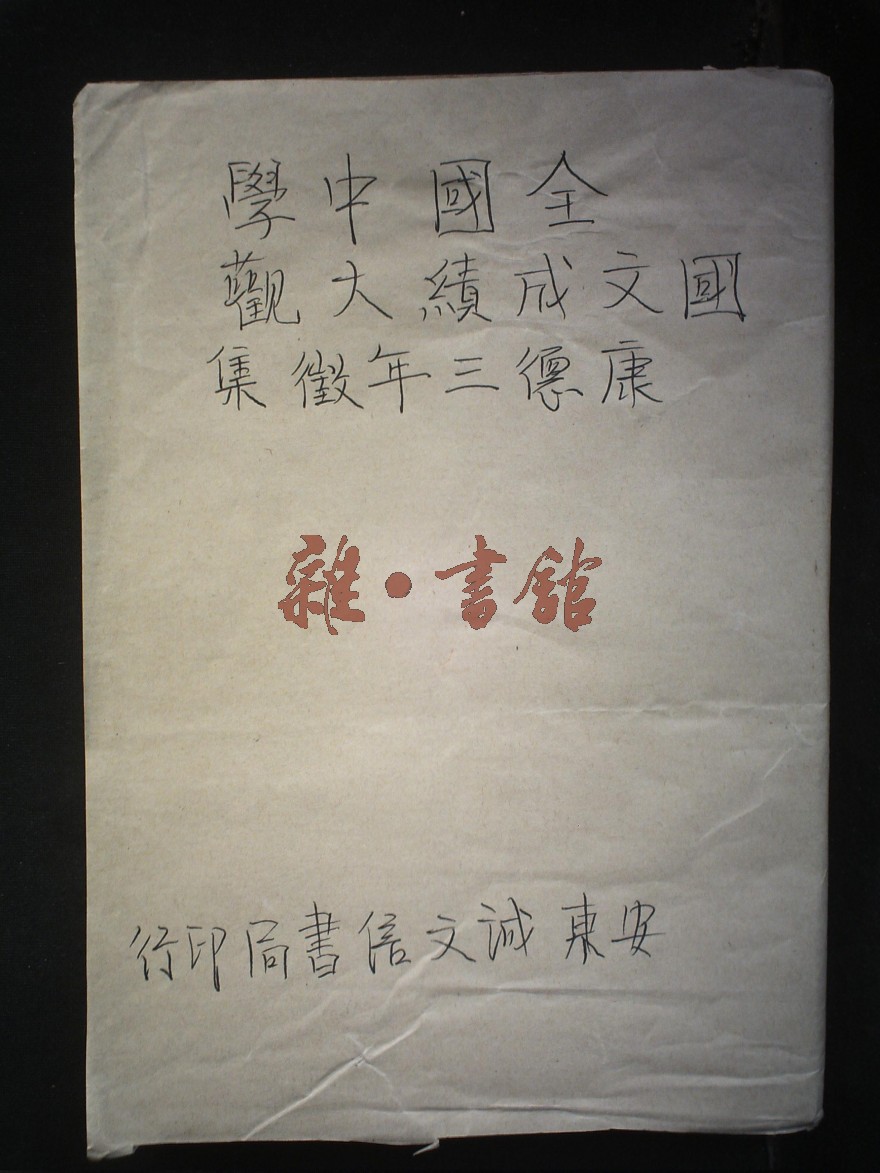 全國中學
國文成績大觀
康德三年徵集
雜·書館
安東誠文信書局印行